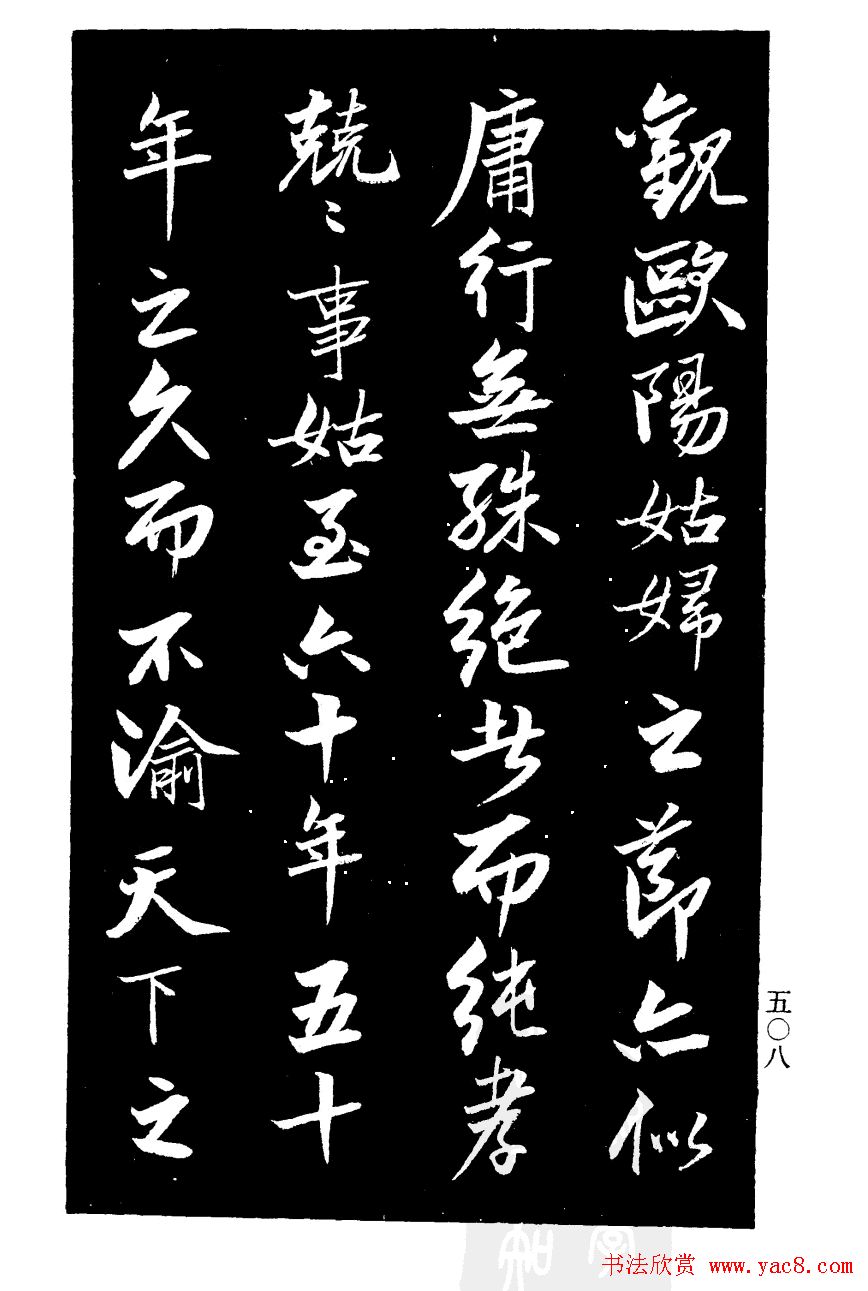 觀歐陽姑婦之節亦似
庸行無殊絶者而純孝
兢〻事姑至六十年五十
年之久而不渝天下之
五〇八
书法欣赏 www.yac8.com